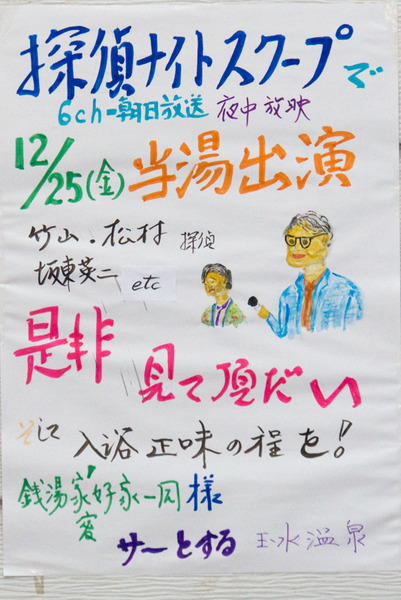 探偵ナイトスクープで
6ch=朝日放送 夜中放映
12/25(金) 当湯出演
竹山・松村 探偵
坂東英二 etc
是非
見て頂だい
そして 入浴正味の程を!
銭湯家好家一同様
サーとする 玉水温泉